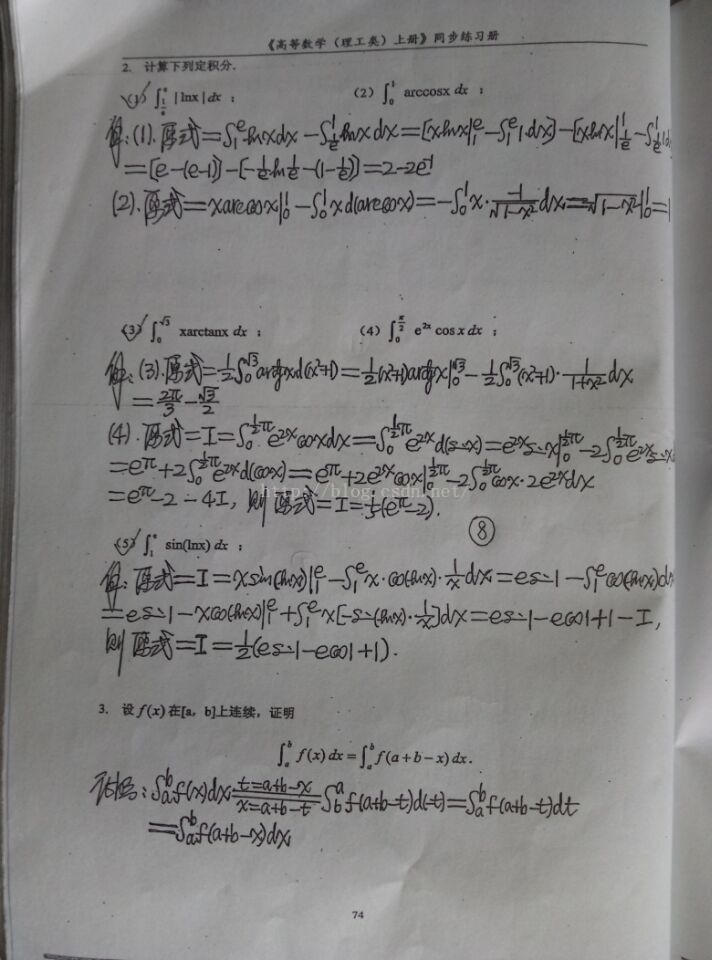 《高等数学（理工类）上册》同步练习册
2. 计算下列定积分.
(1) ∫_{1/e}^{e} |lnx| dx ; (2) ∫_0^1 arccosx dx ;
解: (1). 原式=∫_1^e lnxdx-∫_{1/e}^1 lnxdx=[xlnx|_1^e-∫_1^e 1·dx]-[xlnx|_{1/e}^1-∫_{1/e}^1 1d
=[e-(e-1)]-[-1/e ln 1/e-(1-1/e)]=2-2e^{-1}
(2). 原式=xarccosx|_0^1-∫_0^1 xd(arccosx)=-∫_0^1 x·-1/√(1-x²) dx=-√(1-x²)|_0^1=1
(3) ∫_0^{√3} xarctanx dx ; (4) ∫_0^{π/2} e^{2x} cos x dx ;
解: (3). 原式=1/2∫_0^{√3} arctgxd(x²+1)=1/2(x²+1)arctgx|_0^{√3}-1/2∫_0^{√3}(x²+1)·1/(1+x²) dx
=2π/3-√3/2
(4). 原式=I=∫_0^{½π} e^{2x}cosxdx=∫_0^{½π} e^{2x}d(sinx)=e^{2x}sinx|_0^{½π}-2∫_0^{½π} e^{2x}sinx
=e^π+2∫_0^{½π} e^{2x}d(cosx)=e^π+2e^{2x}cosx|_0^{½π}-2∫_0^{½π} cosx·2e^{2x}dx
http://blog.csdn.net/
=e^π-2-4I, 则原式=I=1/5(e^π-2).
⑧
(5) ∫_1^e sin(lnx) dx ;
解: 原式=I=xsin(lnx)|_1^e-∫_1^e x·cos(lnx)·1/x dx=esin1-∫_1^e cos(lnx)dx
=esin1-xcos(lnx)|_1^e+∫_1^e x[-sin(lnx)·1/x]dx=esin1-ecos1+1-I,
则原式=I=1/2(esin1-ecos1+1).
3. 设 f(x) 在[a, b]上连续，证明
∫_a^b f(x) dx=∫_a^b f(a+b-x) dx.
证明: ∫_a^b f(x)dx t=a+b-x x=a+b-t ∫_b^a f(a+b-t)d(-t)=∫_a^b f(a+b-t)dt
=∫_a^b f(a+b-x)dx
74